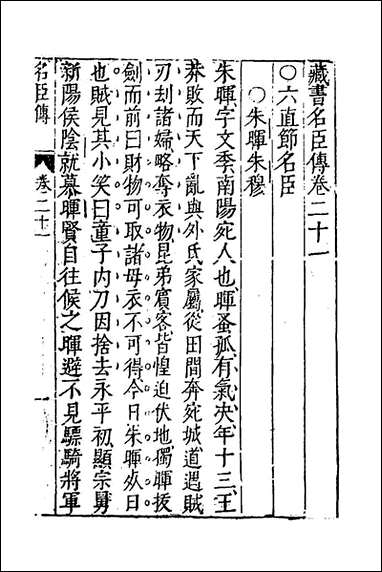 藏書名臣傳卷二十一
○六直節名臣
○朱暉朱穆
朱暉字文季南陽宛人也暉蚤孤有氣決年十三王
莽敗而天下亂與外氏家屬從田間奔宛城道遇賊
刃刦諸婦略奪衣物昆弟賓客皆惶迫伏地獨暉拔
劍而前曰財物可取諸母衣不可得今日朱暉死日
也賊見其小笑曰童子内刀因捨去永平初顯宗舅
新陽侯陰就慕暉賢自往候之暉避不見驃騎將軍
名臣傳
卷二十一
一